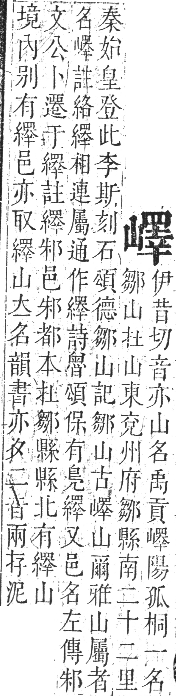 嶧
伊昔切音亦山名禹貢嶧陽孤桐一名
鄒山在山東兖州府鄒縣南二十二里
秦始皇登此李斯刻石頌德鄒山記鄒山古嶧山爾雅山屬者
名嶧註絡繹相連屬通作繹詩魯頌保有鳧繹又邑名左傳邾
文公卜遷于繹註繹邾邑邾都本在鄒縣縣北有繹山
境内别有繹邑亦取繹山大名韻書亦多二音兩存泥